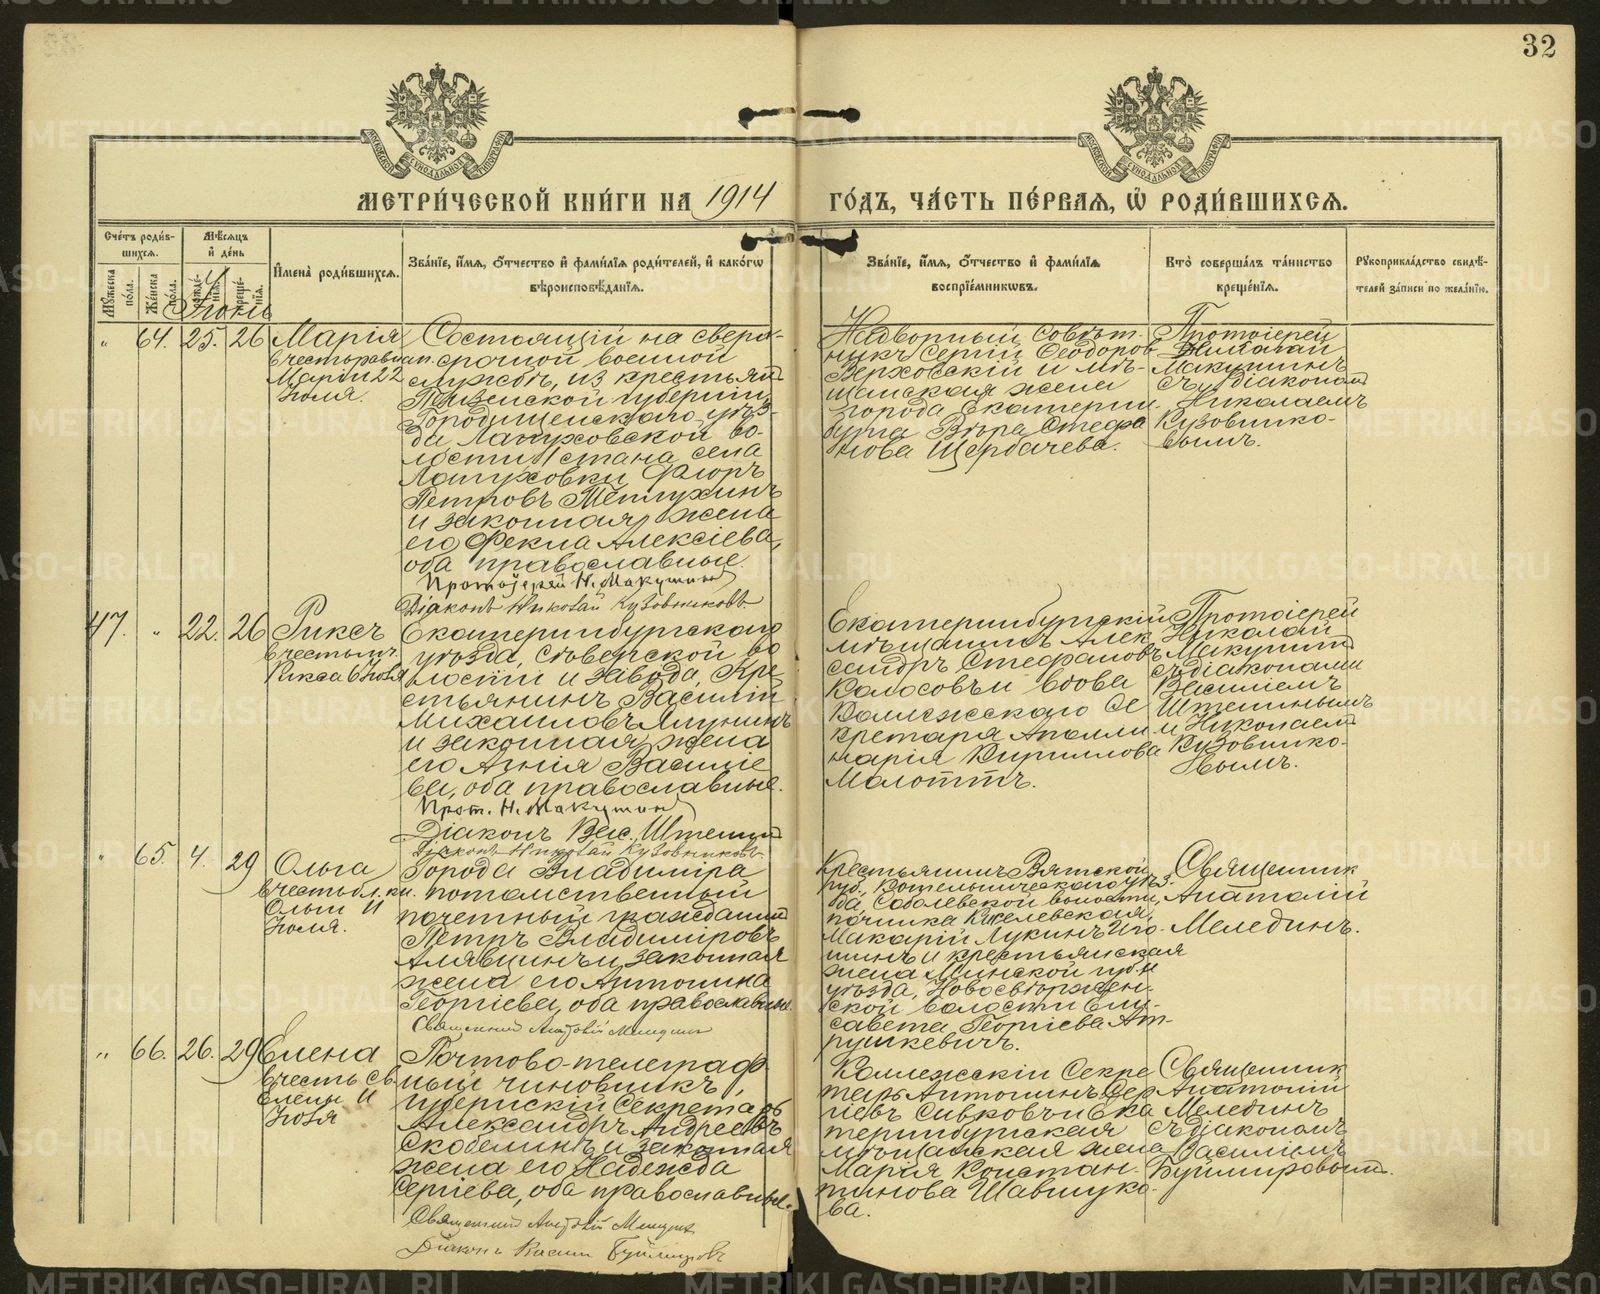 32
МОСКОВСКОЙ СѴНОДАЛЬНОЙ ТИПОГРАФІИ
МОСКОВСКОЙ СѴНОДАЛЬНОЙ ТИПОГРАФІИ
МЕТРИ́ЧЕСКОЙ КНИ́ГИ НА 1914 ГО́ДЪ, ЧА́СТЬ ПЕ́РВАЯ, Ѡ҆ РОДИ́ВШИХСЯ.
Сче́тъ роди́въ-
шихся.
Му́жеска по́ла.
Же́нска по́ла.
Мѣ́сяцъ
и҆ де́нь
рожде́нїя.
креще́нїя.
И҆мена̀ роди́вшихся.
Зва́нїе, и҆́мя, ѻ҆́тчество и҆ фами́лїя роди́телей, и҆ како́гѡ
вѣроисповѣ́данїя.
Зва́нїе, и҆́мя, ѻ҆́тчество и҆ фами́лїя
воспрїе́мникѡвъ.
Кто̀ соверша́лъ та́инство
креще́нїя.
Рꙋкоприкла́дство свидѣ́-
телей за́писи по жела́нїю.
Іюнь
" 64. 25. 26 Марія
в честь равноап.
Маріи 22
Іюля.
Состоящій на сверх-
срочной военной
службѣ, из крестьян
Пензенской губерніи,
Городищенскаго уѣз-
да Лапуховской во-
лости 1 стана села
Лапуховки Флоръ
Петровъ Теплухинъ
и законная жена
его Фекла Алексіева,
оба православные.
Протоіерей Н. Макушин
Діаконъ Николай Кузовниковъ
Надворный Совѣт-
никъ Сергій Феодоров
Верховскій и мѣ-
щанская жена
города Екатерин-
бурга Вѣра Стефа
нова Щербачева.
Протоіерей
Николай
Макушинъ
съ діаконом
Николаемъ
Кузовнико-
вымъ.
47. " 22. 26 Риксъ
в честь мч.
Рикса 6 Іюля
Екатеринбургскаго
уѣзда, Сѣверской во
лости и завода, Кре
стьянинъ Василій
Михаиловъ Япунинъ
и законная жена
его Агнія Василіе
ва, оба православные.
Прот. Н. Макушин
Діаконъ Вас. Штенин
Діаконъ Николай Кузовниковъ
Екатеринбургскій
мѣщанинъ Алек
сандръ Стефановъ
Колосовъ и вдова
Коллежскаго Се
кретаря Аполли
нарія Кириллова
Малоттъ.
Протоіерей
Николай
Макушин
съ діаконами
Василіемъ
Штенинымъ
и Николаем
Кузовнико-
вымъ.
" 65. 4. 29 Ольга
в честь бл. кн.
Ольги 11
Іюля.
Города Владиміра
потомственный
почетный гражданин
Петръ Владиміровъ
Алявцинъ и законная
жена его Антонина
Георгіева, оба православные.
Священник Анатолій Мелединъ
Крестьянинъ Вятской
губ., Котельническаго уѣз-
да, Соболевской волости,
починка Киселевская,
Макарій Лукинъ Иго-
шинъ и крестьянская
жена Минской губ. и
уѣзда, Новосвержен-
ской волости Ели-
савета Георгіева Ат-
рушкевичъ.
Священник
Анатолій
Мелединъ.
" 66. 26. 29 Елена
в честь св.
Елены 11
Іюля
Почтово-телеграф-
ный чиновникъ,
губернскій Секретарь
Александръ Андреевъ
Скобелинъ и законная
жена его Надежда
Сергіева, оба православные.
Священник Анатолій Мелединъ
Діаконъ Васил Буймировъ
Коллежскій Секре
тарь Антонинъ Сер
гіевъ Сивковъ и Ека
теринбургская
мѣщанская жена
Марія Констан-
тинова Шавшуко-
ва.
Священник
Анатолій
Мелединъ
съ діакономъ
Василіемъ
Буймировым.
METRIKI.GASO-URAL.RU